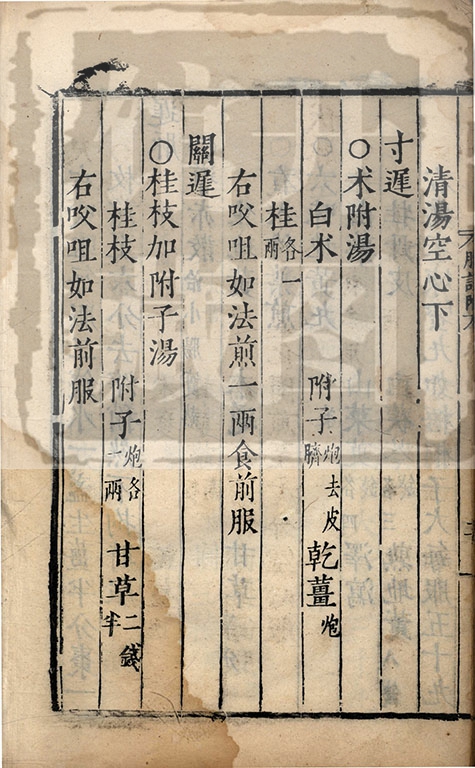 清湯空心下
寸遲
○朮附湯
白朮 附子炮去皮臍 乾薑炮
桂各一兩
右㕮咀如法煎一兩食前服
關遲
○桂枝加附子湯
桂枝 附子炮各一兩 甘草二錢半
右㕮咀如法前服